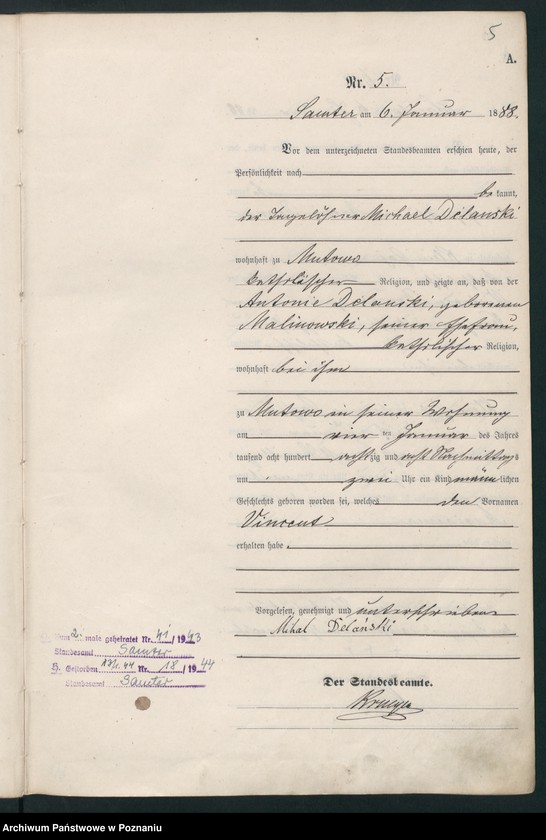 5
A.
Nr. 5.
Samter am 6. Januar 1888.
Vor dem unterzeichneten Standesbeamten erschien heute, der
Persönlichkeit nach
bekannt,
der Tagelöhner Michael Délanski
wohnhaft zu Mutowo
katholischer Religion, und zeigte an, daß von der
Antonie Délanski, geborenen
Malinowski, seiner Ehefrau,
katholischer Religion,
wohnhaft bei ihm
zu Mutowo in seiner Wohnung
am vier ten Januar des Jahres
tausend acht hundert achtzig und acht Nachmittags
um zwei Uhr ein Kind männlichen
Geschlechts geboren worden sei, welches den Vornamen
Vincent
erhalten habe.
Vorgelesen, genehmigt und unterschrieben
Mihal Delański
Zum 2. male geheiratet Nr. 41/1943
Standesamt Samter
H. Gestorben Nr. 18/1944
Standesamt Samter
Der Standesbeamte.
Archiwum Państwowe w Poznaniu